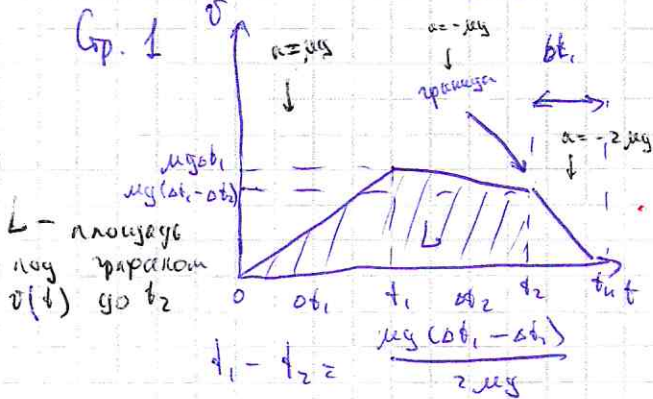 Стр. 1
v
a = μg
a = -μg
граница
Δt₁
a = -2μg
μgΔt₁
μg(Δt₁-Δt₂)
L
L - площадь
под графиком
v(t) до t₂
0 Δt₁ t₁ Δt₂ t₂ tк t
t₁ - t₂ = μg(Δt₁-Δt₂) / 2μg